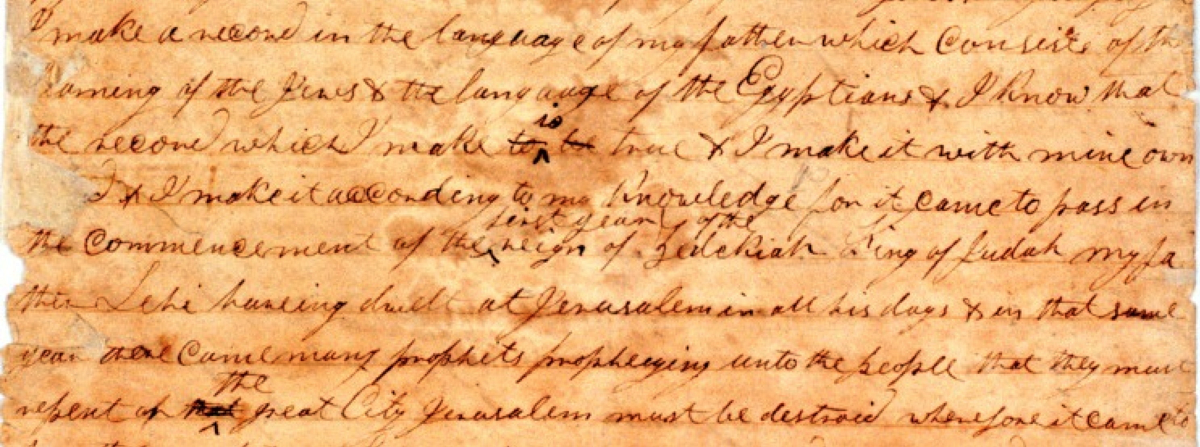 I make a record in the language of my father which consists of th
learning of the Jews & the language of the Egyptians & I know that
the record which I make is to be true & I make it with mine own
d & I make it according to my knowledge for it came to pass in
the commencement of the first year of the reign of zedekiah King of Judah my fa
ther Lehi haveing dwelt at Jerusalem in all his days & in that same
year there came many prophets prophesying unto the people that they must
repent or the that great City Jerusalem must be destroid wherefore it came to